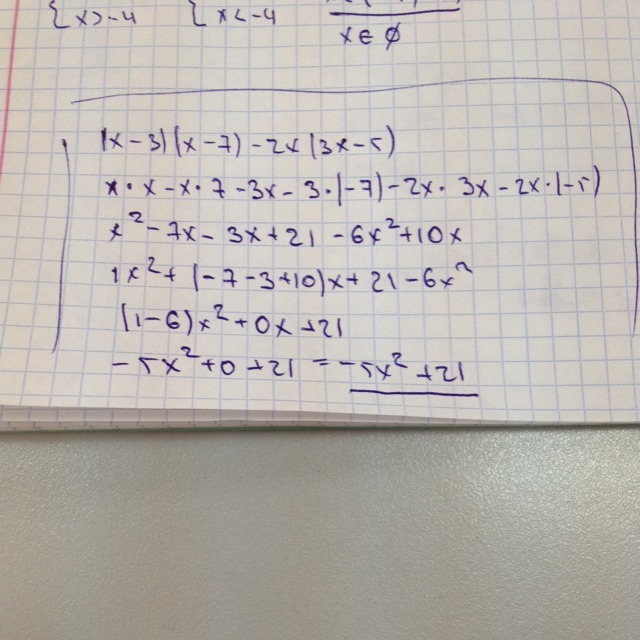 {x>-4 {x<-4
x∈∅
(x-3)(x-7)-2x(3x-5)
x·x-x·7-3x-3·(-7)-2x·3x-2x·(-5)
x²-7x-3x+21-6x²+10x
1x²+(-7-3+10)x+21-6x²
(1-6)x²+0x+21
-5x²+0+21=-5x²+21